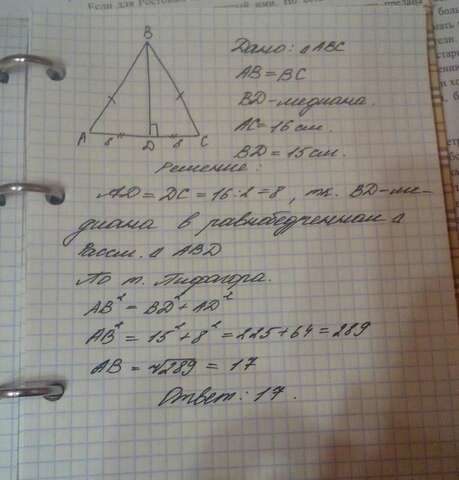 Если для Ростова
B
A
8
D
8
C
Дано: △ABC
AB = BC
BD - медиана.
AC = 16 см.
BD = 15 см.
Решение:
AD = DC = 16 : 2 = 8, т.к. BD - ме-
диана в равнобедренном △
Рассм. △ ABD
По т. Пифагора.
AB² = BD² + AD²
AB² = 15² + 8² = 225 + 64 = 289
AB = √289 = 17
Ответ: 17.